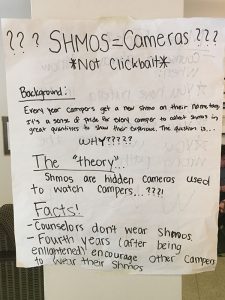 ? ? ? SHMOS = Cameras ? ? ?
*Not Clickbait*
Background:
Every year campers get a new shmo on their nametag.
It's a sense of pride for every camper to collect shmos in
great quantities to show their The question is...
WHY?????
The "theory"...
Shmos are hidden cameras used
to watch campers...???!
Facts!
- Counselors don't wear Shmos.
- Fourth years (after being
enlightened) encourage other campers
to wear their Shmos